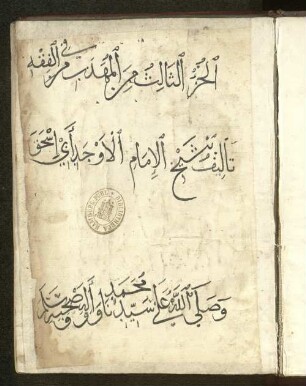 الجزء الثالث من المهذب في الفقه
تأليف الشيخ الإمام الأوحد أبي إسحق
وصلى الله على سيدنا محمد وآله وصحبه